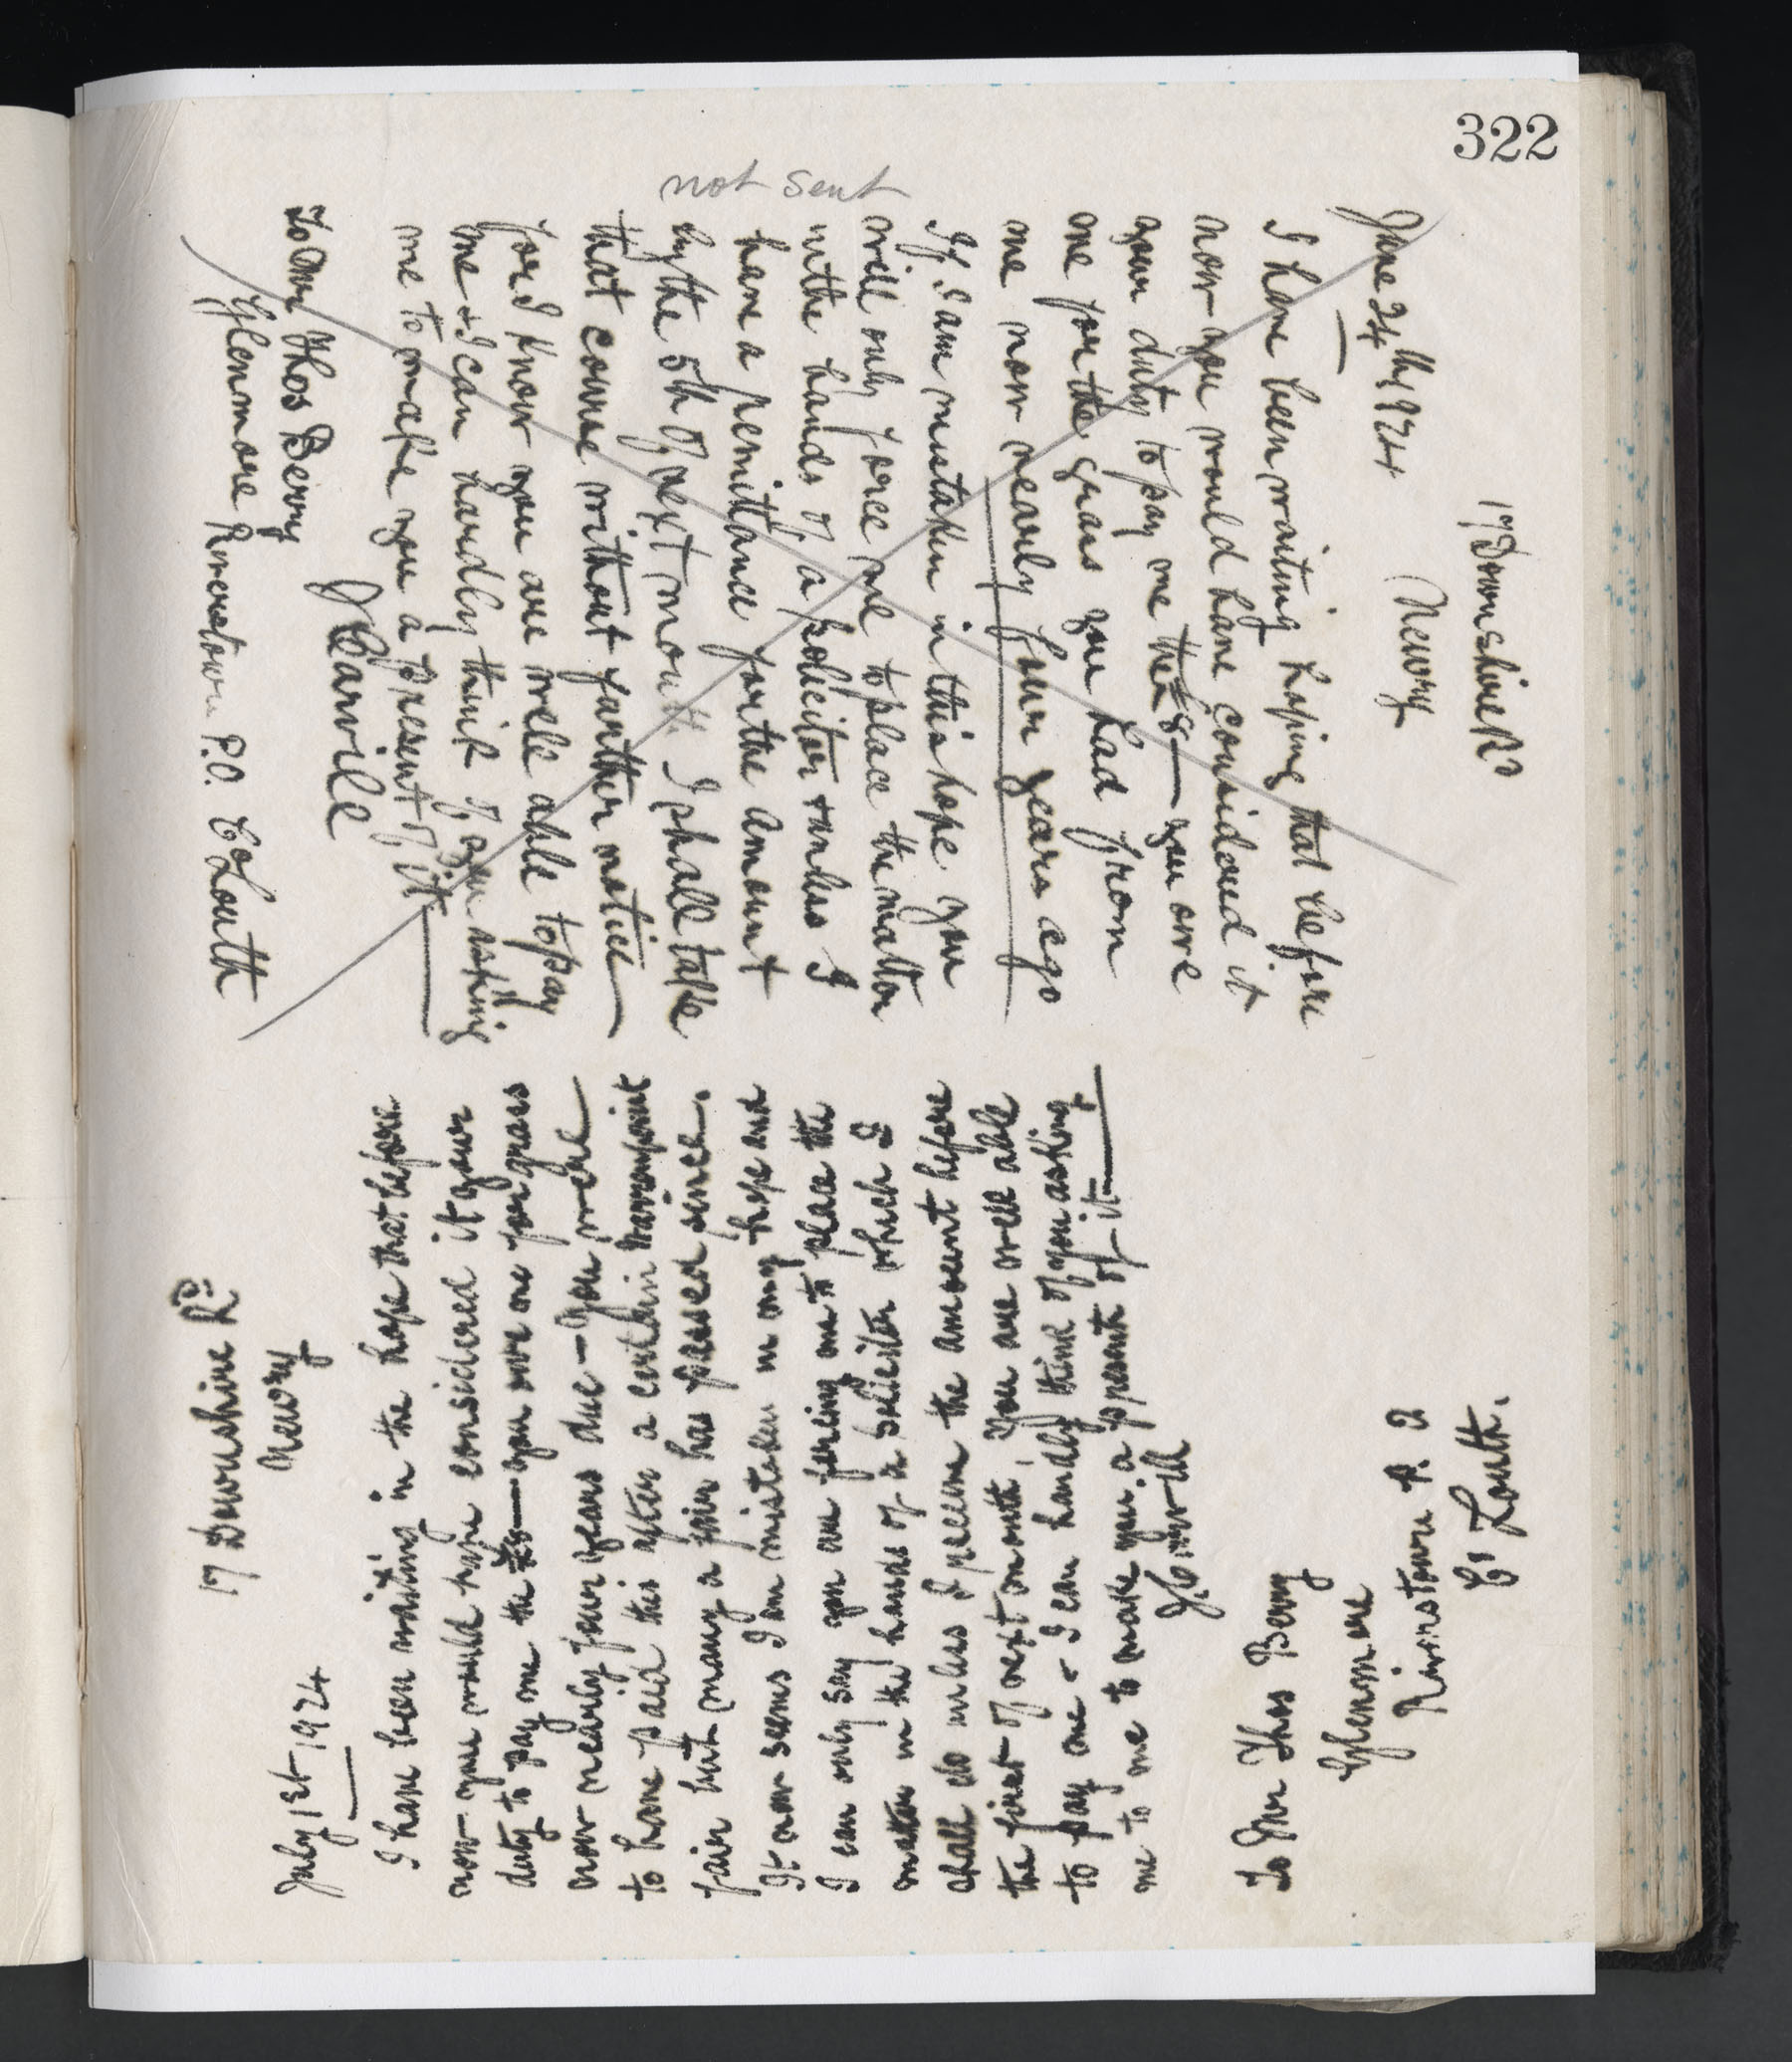 322
not sent
17 Downshire Rd
Newry
June 24th 1924
I have been waiting hoping that before
now you would have considered it
your duty to pay me the £8 — you owe
me for the grass you had from
me now nearly four years ago
If I am mistaken in this hope you
will only force me to place the matter
in the hands of a solicitor & unless I
have a remittance for the amount
by the 5th of next month I shall take
that course without further notice —
for I know you are well able to pay
me & I can hardly think of you asking
me to make you a present of it —
J Carvill
To Mr Thos Berry
Glenmore Riverstown P.O. Co Louth
17 Downshire Rd
Newry
July 1st 1924
I have been waiting in the hope that before
now you would have considered it your
duty to pay me the £8 — you owe me for grass
now nearly four years due — You were
to have paid this after a certain Warrenpoint
fair but many a fair has passed since.
It now seems I am mistaken in my hope and
I can only say you are forcing me to place the
matter in the hands of a solicitor which I
shall do unless I receive the amount before
the first of next month, You are well able
to pay me & I can hardly think of you asking
me to me to make you a present of it —
J. Carvill
To Mr Thos Berry
Glenmore
Riverstown P. O
Co Louth.